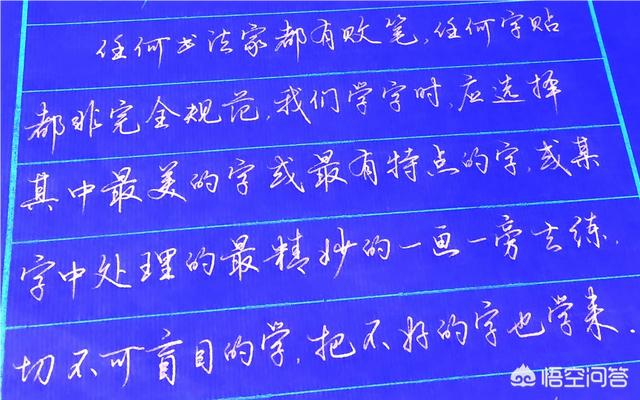 任何书法家都有败笔,任何字贴
都非完全规范,我们学字时,应选择
其中最美的字或最有特点的字,或某
字中处理的最精妙的一画一旁去练,
切不可盲目的学,把不好的字也学来.
悟空问答